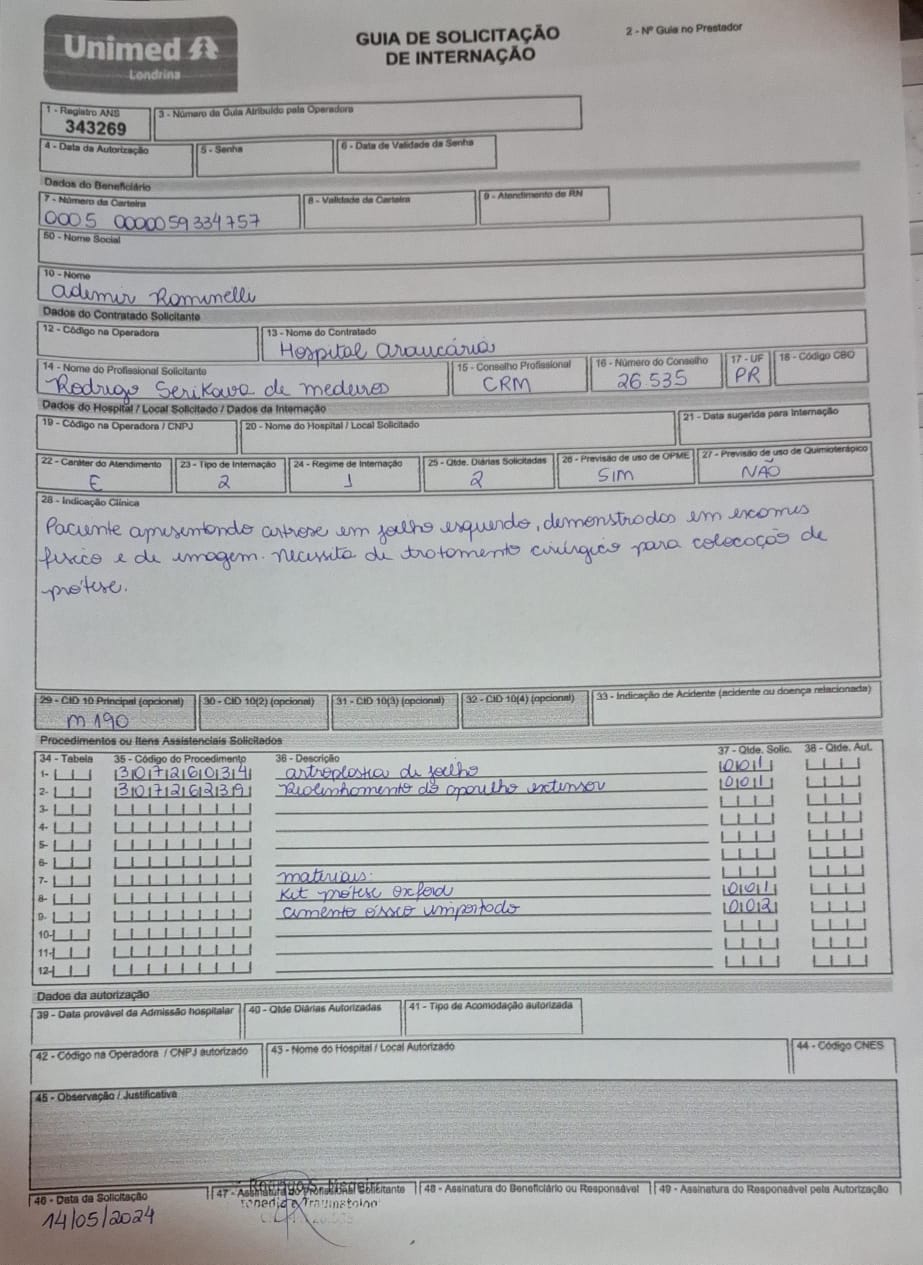 Unimed
Londrina
GUIA DE SOLICITAÇÃO
DE INTERNAÇÃO
2 - Nº Guia no Prestador
1 - Registro ANS
343269
3 - Número da Guia Atribuído pela Operadora
4 - Data da Autorização
5 - Senha
6 - Data de Validade da Senha
Dados do Beneficiário
7 - Número da Carteira
0005 0000059334757
8 - Validade da Carteira
9 - Atendimento de RN
50 - Nome Social
10 - Nome
Ademir Rominelli
Dados do Contratado Solicitante
12 - Código na Operadora
13 - Nome do Contratado
Hospital Araucária
14 - Nome do Profissional Solicitante
Rodrigo Serikawa de medeiros
15 - Conselho Profissional
CRM
16 - Número do Conselho
26.535
17 - UF
PR
18 - Código CBO
Dados do Hospital / Local Solicitado / Dados da Internação
19 - Código na Operadora / CNPJ
20 - Nome do Hospital / Local Solicitado
21 - Data sugerida para Internação
22 - Caráter do Atendimento
E
23 - Tipo de Internação
2
24 - Regime de Internação
1
25 - Qtde. Diárias Solicitadas
2
26 - Previsão de uso de OPME
SIM
27 - Previsão de uso de Quimioterápico
NÃO
28 - Indicação Clínica
Paciente apresentando artrose em joelho esquerdo, demonstrados em exames
físico e de imagem. necessita de tratamento cirúrgico para colocação de
prótese.
29 - CID 10 Principal (opcional)
M190
30 - CID 10(2) (opcional)
31 - CID 10(3) (opcional)
32 - CID 10(4) (opcional)
33 - Indicação de Acidente (acidente ou doença relacionada)
Procedimentos ou Itens Assistenciais Solicitados
34 - Tabela 35 - Código do Procedimento 36 - Descrição 37 - Qtde. Solic. 38 - Qtde. Aut.
1- 30726034 artroplastia de joelho 001
2- 30726239 realinhamento do aparelho extensor 001
3-
4-
5-
6-
7- materiais:
8- Kit prótese oxford 001
9- cimento ósseo importado 002
10-
11-
12-
Dados da autorização
39 - Data provável da Admissão hospitalar
40 - Qtde Diárias Autorizadas
41 - Tipo de Acomodação autorizada
42 - Código na Operadora / CNPJ autorizado
43 - Nome do Hospital / Local Autorizado
44 - Código CNES
45 - Observação / Justificativa
46 - Data da Solicitação
14/05/2024
47 - Assinatura do Profissional Solicitante
48 - Assinatura do Beneficiário ou Responsável
49 - Assinatura do Responsável pela Autorização